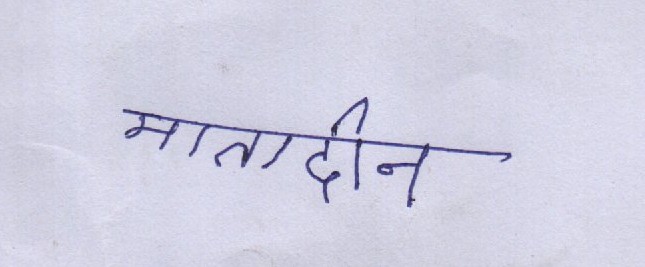 मातादीन